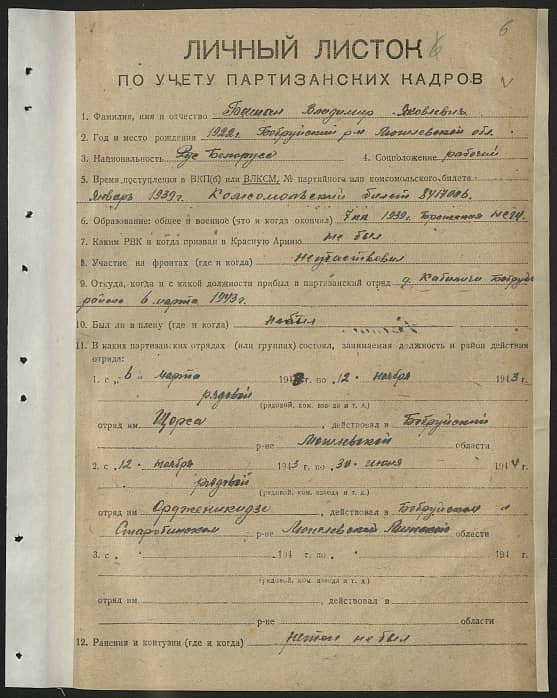 6
ЛИЧНЫЙ ЛИСТОК
ПО УЧЕТУ ПАРТИЗАНСКИХ КАДРОВ
1. Фамилия, имя и отчество Владимир Яковлевич
2. Год и место рождения 1922г. Бобруйский р-н Могилевской обл.
3. Национальность Белорус 4. Соцположение рабочий
5. Время поступления в ВКП(б) или ВЛКСМ, № партийного или комсомольского билета
Январь 1939г. Комсомольский билет 8417006.
6. Образование: общее и военное (что и когда окончил) 7 кл 1939г.
7. Каким РВК и когда призван в Красную Армию не был
8. Участие на фронтах (где и когда) Неучаствовал
9. Откуда, когда и с какой должности прибыл в партизанский отряд д.
района 6 марта 1943г.
10. Был ли в плену (где и когда) небыл
11. В каких партизанских отрядах (или группах) состоял, занимаемая должность и район действия
отряда:
1. с „6 марта 1943 г. по „12 ноября 1943 г.
рядовой
(рядовой, ком. взвода и т. д.)
отряд им. Щорса, действовал в Бобруйский
р-не Могилевской области
2. с „12 ноября 1943 г. по „30 июня 1944 г.
рядовой
(рядовой, ком. взвода и т. д.)
отряд им. Орджоникидзе, действовал в Бобруйском и
Старобинском р-не Могилевской Минской области
3. с „ 194 г. по „ 194 г.
(рядовой, ком. взвода и т. д.)
отряд им. , действовал в
р-не области
12. Ранения и контузии (где и когда) не был